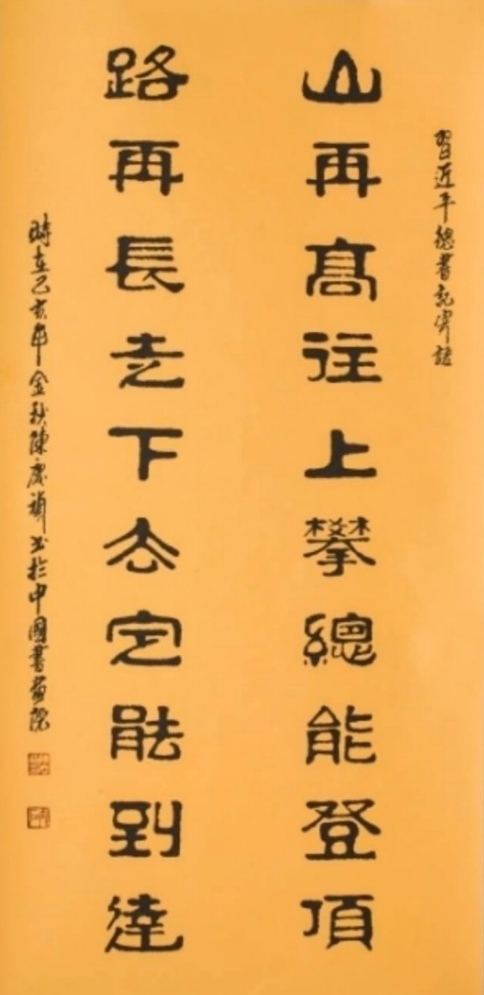 習近平總書記穿語
山再高往上攀總能登頂
路再長走下去定能到達
時在己亥年金秋陳慶禎書於中國書畫院